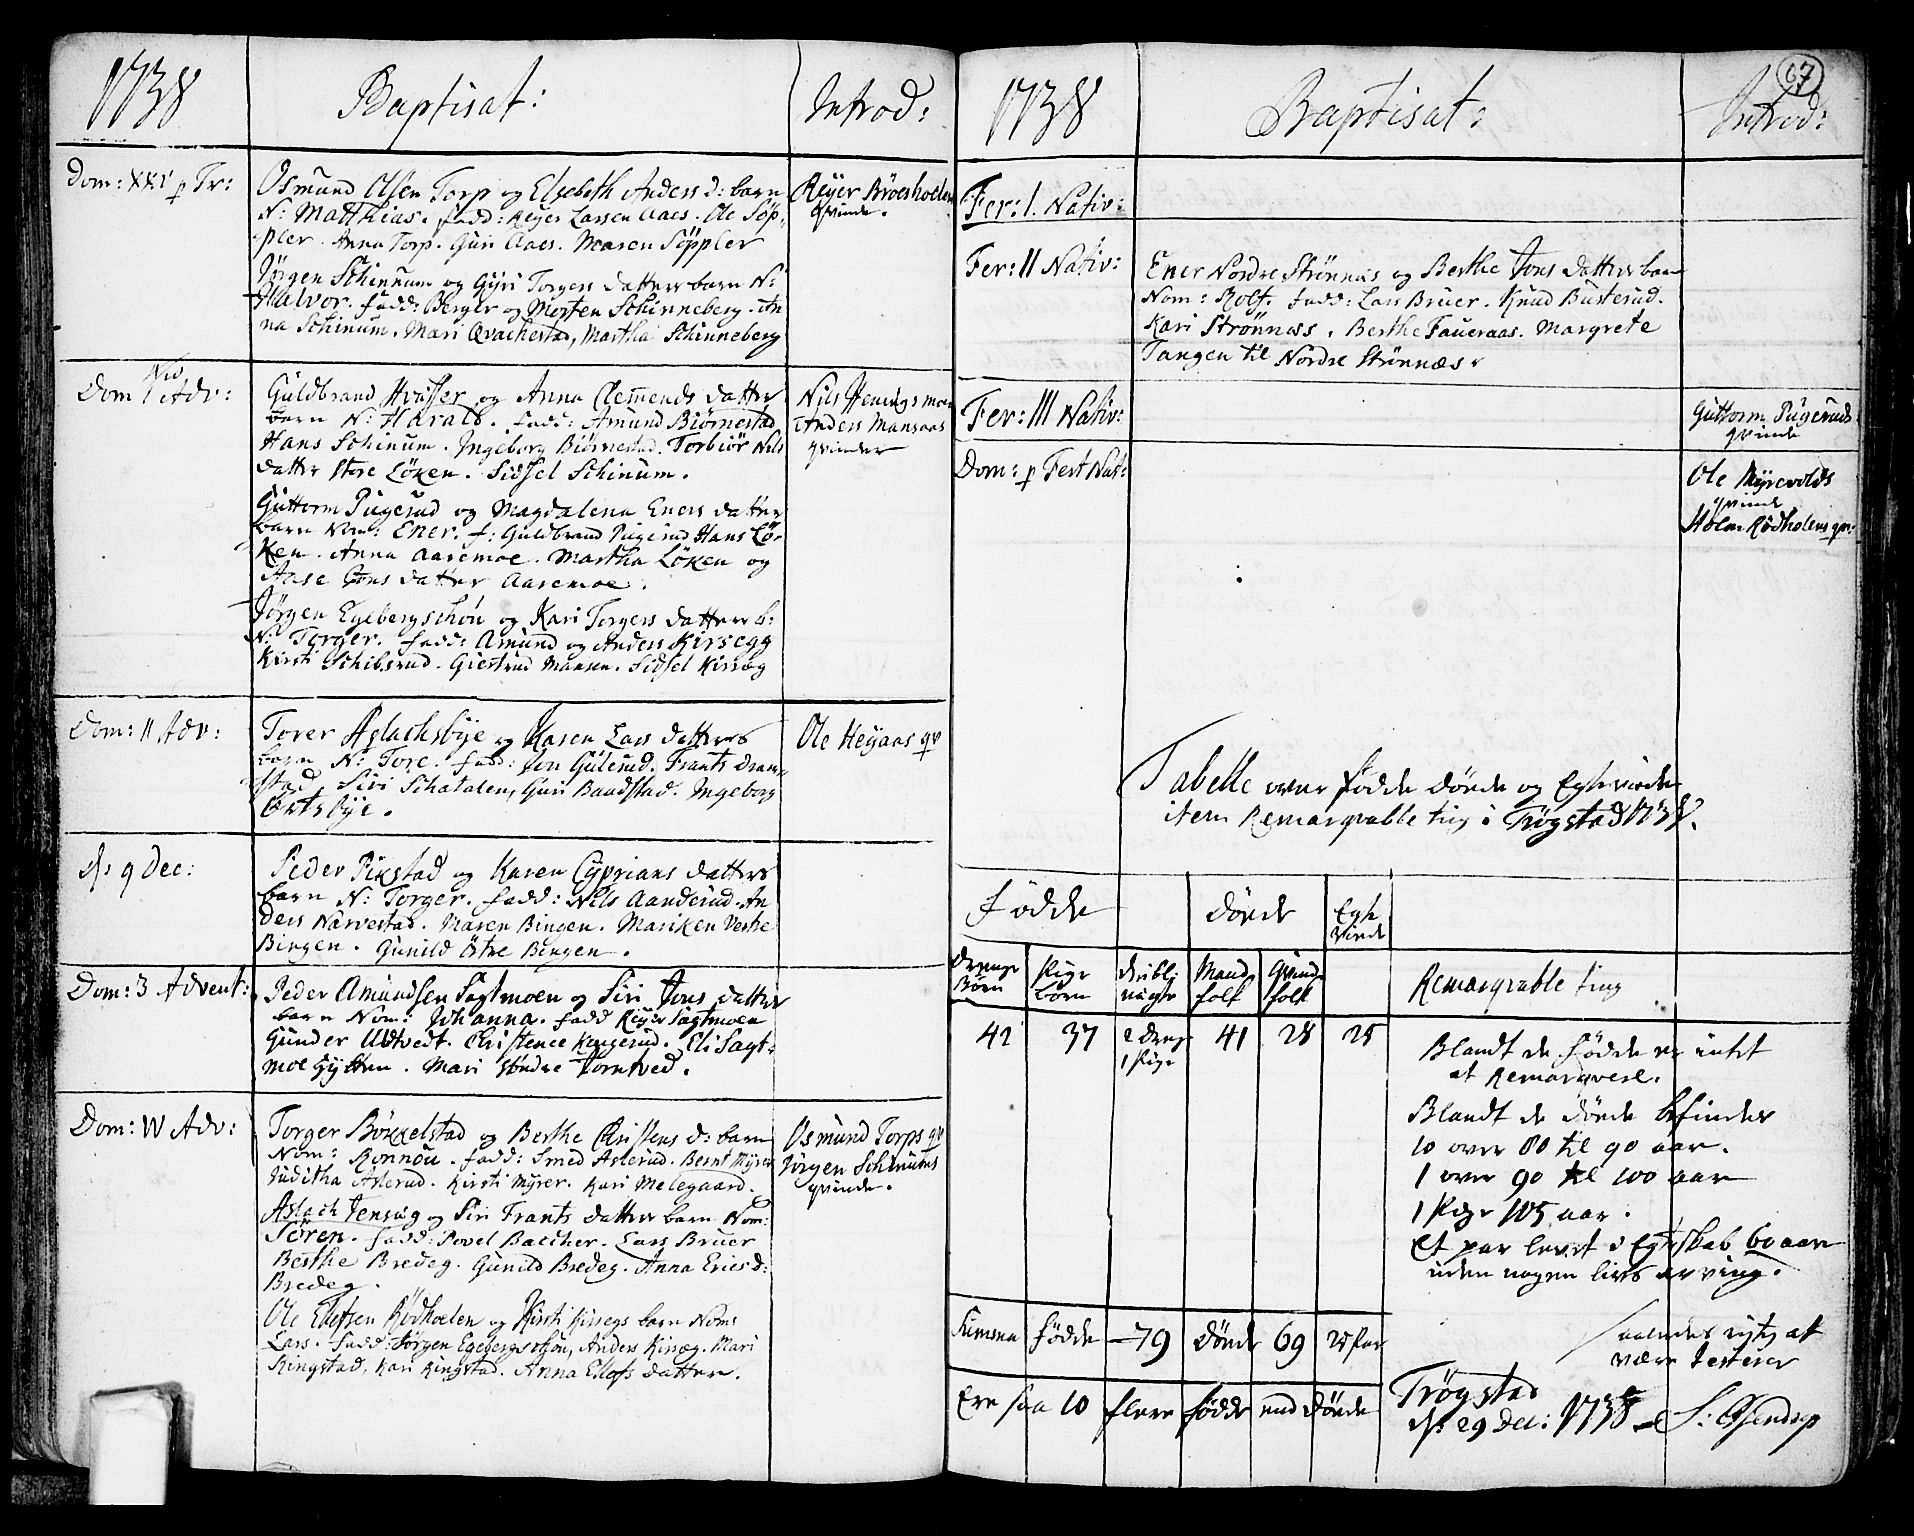 1738
Baptisat:
Introd:
Dom: XXI p Tr:
Osmund Olsen Torp og Elsebeth Anders d: barn
N: Matthias. fadd: Reyer Larsen Aaes. Ole Söp-
pler. Anna Torp. Guri Aaes. Maren Söppler
Jörgen Schinnum og Gyri Torgers datters barn N:
Halvor. fadd: Berger og Morten Schinneberg. An
na Schinum. Mari Qvachestad, Martha Schinneberg
Reyer Broesholen
qvinde.
Dom 1 Adv:
Guldbrand Hvasser og Anna Clemends datter
barn N: Harald. fadd: Amund Biørnestad
Hans Schinum. Ingeborg Biørnestad. Torbiør Nils
datter Store Löken. Sidsel Schinum.
Guttorm Pugerud og Magdalena Eners datter
barn Nom: Ener. f: Guldbrand Pugerud Hans Lö-
ken. Anna Aaremoe. Martha Löken og
Aase datter Aaremoe.
Jörgen Egebergschou og Kari Torgers datters b:
N: Torger. fadd: Amund og Anders Kirsegg
Kirsti Schibsrud. Giertrud Monsen. Sidsel Kirseg
Nils
Anders Mansaas
qvinder
Dom: II Adv:
Torer Aslachsbye og Karen Lars datters
barn N: Tore. fadd: Jon Gulerud. Frants Dram-
stad, Siri Schatalen, Guri Baadstad. Ingeborg
Ortsbye.
Ole Heyaas qv
ds 9 Dec:
Peder Pikstad og Karen Cyprians datters
barn N: Torger. fadd: Nils Aanderud. An
ders Narvestad. Maren Bingen. Mariken Vestre
Bingen. Gunild Östre Bingen.
Dom: 3 Advent:
Peder Amundsen Sagtmoen og Siri Jons datter
barn Nom: Johanna. fadd Reyer Sagtmoen
Gunder Udtvedt. Christence Kengerud. Eli Sagt-
moe Hytten. Mari Søndre Torntved.
Dom: IV Adv:
Torger Böxxelstad og Berthe Christens d: barn
Nom: Ronnou. fadd: Smed Aslerud. Bernt Myrer
Juditha Aslerud. Kirsti Myrer. Kari Melegaard.
Aslach Jensæg og Siri Frants datter barn Nom:
Sören. fadd: Povel Batcher. Lars Bruer
Berthe Bredeg. Gunild Bredeg. Anna Erics d:
Bredeg.
Ole Ellefsen Rödholen og Kirsti Kirsegs barn Nom:
Lars. fadd: Jörgen Egebergschou, Anders Kirsæg. Mari
Ringstad, Kari Ringstad. Anna Ellefs datter.
Osmund Torps qv
Jörgen Schinums
qvinde.
67
1738
Baptisat:
Introd:
Fer: I. Nativ:
Fer: II Nativ:
Ener Nordre Strönnæs og Berthe Jons datters barn
Nom: Rolf. fadd: Lars Bruer. Knud Busterud.
Kari Strönnæss. Berthe Faueraas. Margrete
Tangen til Nordre Strönnæs.
Fer: III Nativ:
Guttorm Pugeruds
qvinde
Dom: p Fest Nat:
Ole Myrevolds
qvinde
Holm Rödholens qv:
Tabelle over födde dörde og Egteviede
item Remarqvable ting i Trögstad 1738.
Födde
dörde
Egte
Viede
Drenge
Börn
Pige
börn
Mand
folk
Qvind
folk
Remarqvable ting
42
37
2 dreng
1 Pige
41
28
25
Blandt de födde er intet
at Remarqvere.
Blandt de dörde befindes
10 over 80 til 90 aar.
1 over 90 til 100 aar
1 Pige 105 aar.
Et par levet i Egteskab 60 aar
uden nogen livs arving.
Summa
födde
79
dörde
69
25 Par
Ere saa 10 flere födde end dörde
saaledes rigtig at
være Testerer
Trögstad
ds 29 Dec: 1738